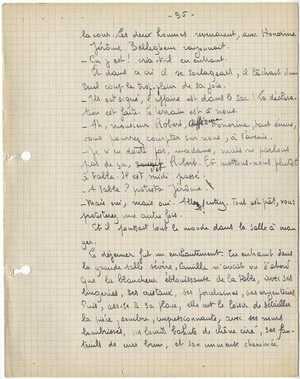 - 95 -
la cour. Les deux hommes revenaient, avec Honorine.
Jérôme Belleghem rayonnait.
- Ça y est ! cria-t-il en entrant.
Et dans ce cri il se soulageait, il lâchait d'un
seul coup le trop-plein de sa joie.
- Ils ont signé, l'affaire est dans le sac ! La déclaration
est faite. Le terrain est à nous.
- Ah, monsieur Robert, Honorine, tout émue
vous pourrez compter sur nous, à l'avenir.
- Je n'en doute pas, madame, mais ne parlons
pas de ça, Robert. Et mettons-nous plutôt
à table. Il est midi passé.
- A table ? protesta Jérôme !
- Mais oui, mais oui. Tout est prêt, vous
protesterez une autre fois.
Et il poussait tout le monde dans la salle à manger.
Le déjeuner fut un enchantement. En entrant dans
la grande salle sévère, Camille n'avait vu d'abord
que la blancheur éblouissante de la table, avec ses
lingeries, ses cristaux, ses porcelaines, ses argenteries.
Puis, assise à sa place, elle eut le loisir de détailler
la pièce, sombre, impressionnante, avec ses murs
lambrissés, de chêne ciré, ses fauteuils
de cuir brun, et son immense cheminée